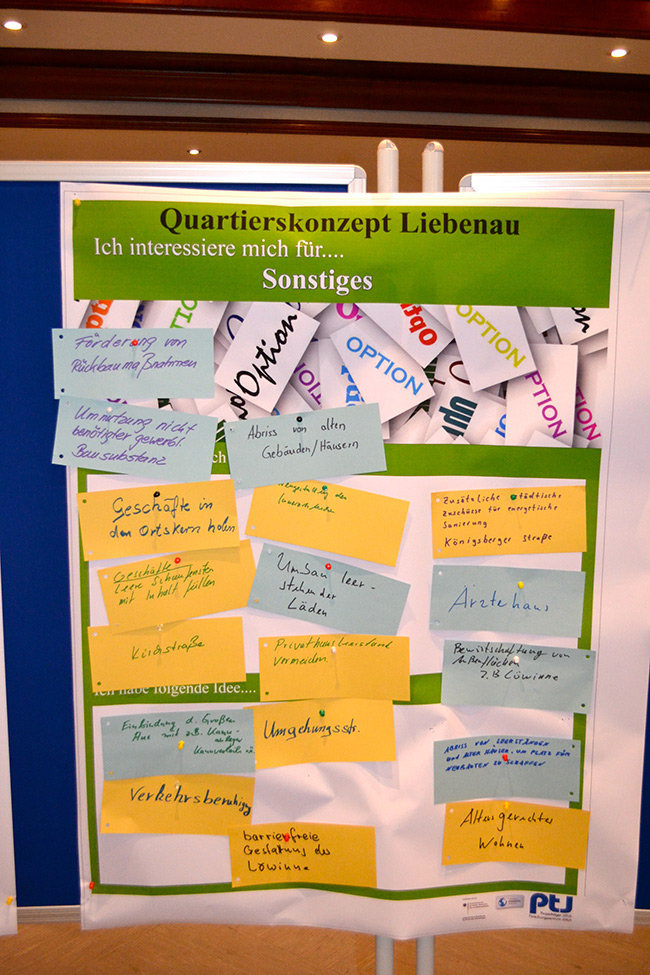 Quartierskonzept Liebenau
Ich interessiere mich für....
Sonstiges
Option
OPTION
OPTION
OPTION
Förderung von
Rückbaumaßnahmen
Umnutzung nicht
benötigter gewerbl.
Bausubstanz
Abriss von alten
Gebäuden/Häusern
Geschäfte in
den Ortskern holen
Zusätzliche städtische
Zuschüsse für energetische
Sanierung
Königsberger Straße
Geschäfte
leere Schaufenster
mit Inhalt füllen
Umbau leer-
stehender
Läden
Ärztehaus
Kirchstraße
Privathausleerstand
vermeiden
Bewirtschaftung von
z.B Löwinne
Ich habe folgende Idee....
Einbindung d. Großen
Aue mit z.B. Kanu-
Umgehungsstr.
Abriss von Leerständen
und alter Häuser, um Platz für
Neubauten zu schaffen
Verkehrsberuhig
barrierefreie
Gestaltung der
Löwinne
Altersgerechtes
Wohnen
ptJ